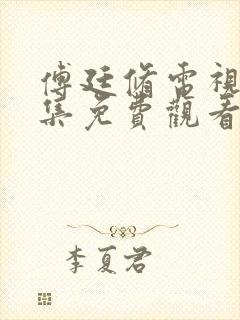 傅廷脩電視
集免費觀看
李夏君